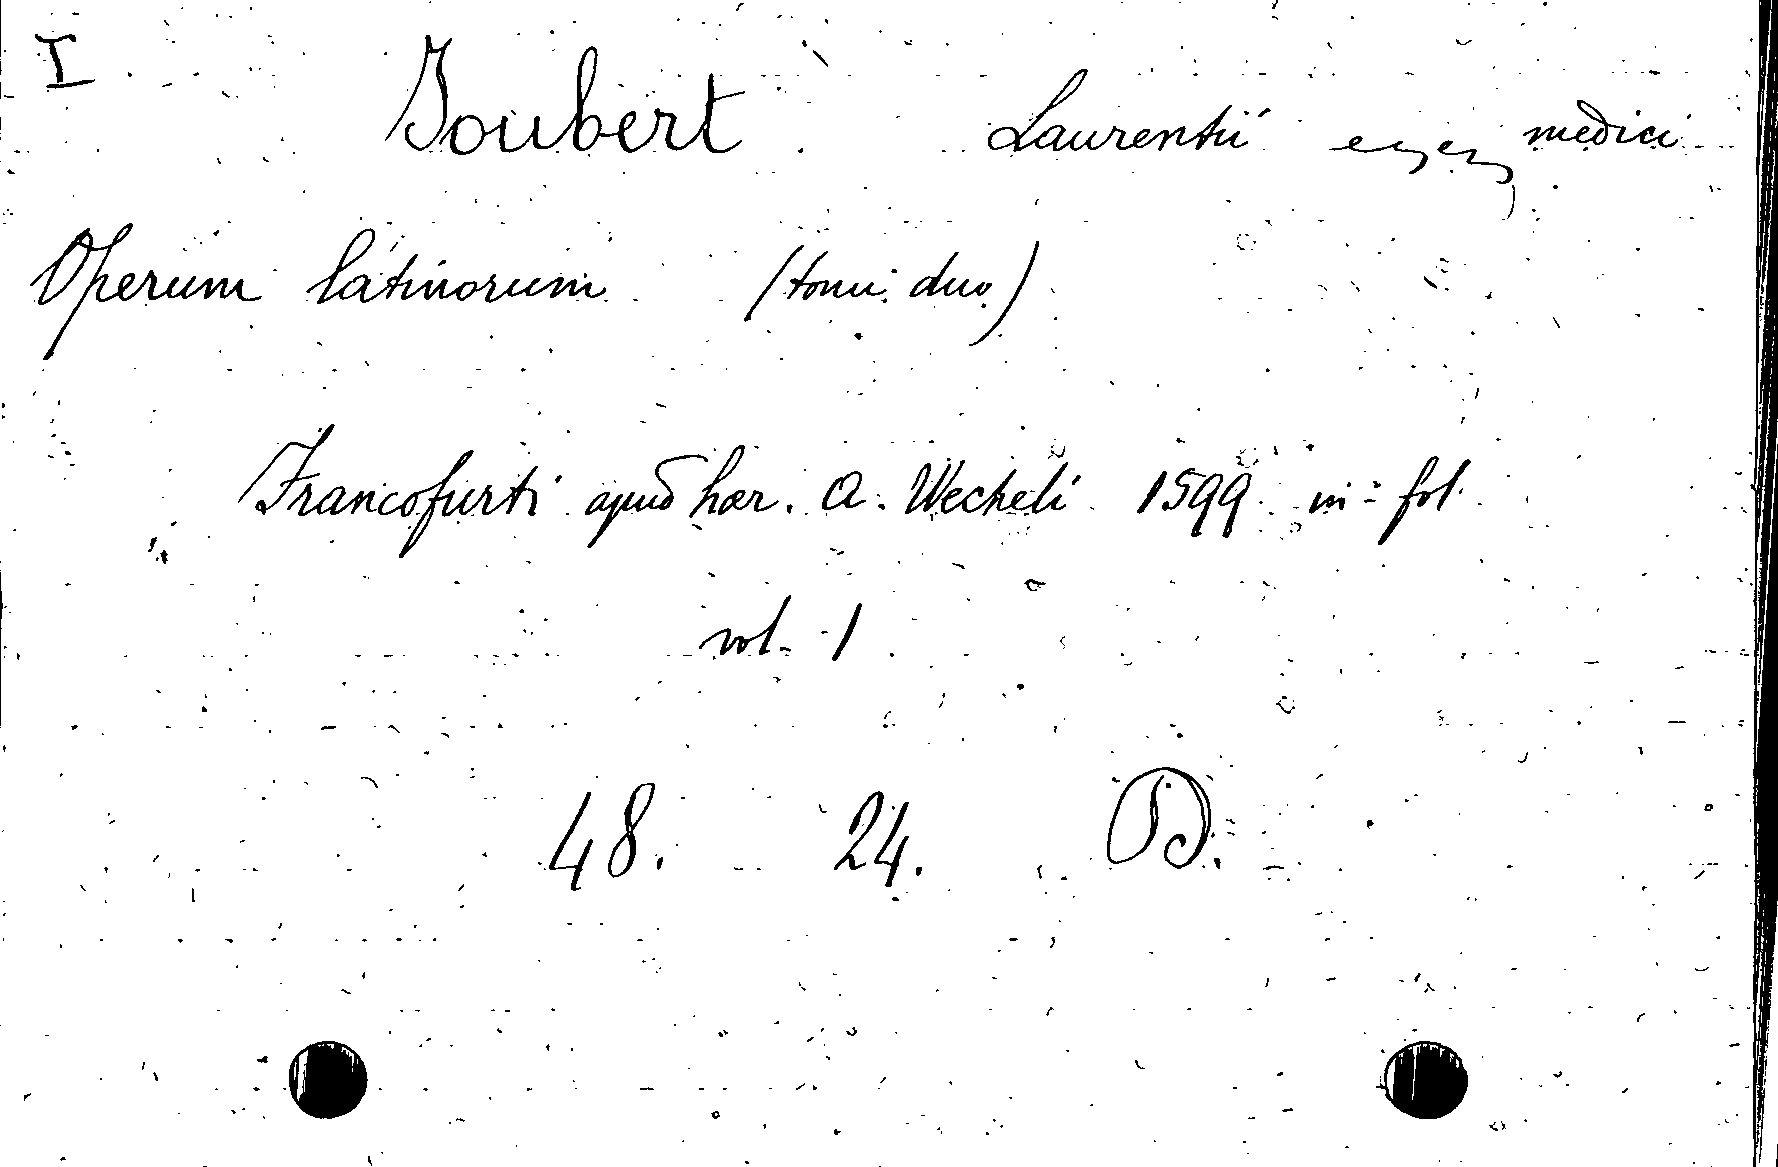 I
Joubert Laurentii medici
Operum latinorum (tomi duo)
Francofurti apud hær. A. Wecheli 1599 in-fol.
vol. 1
48. 24. D.